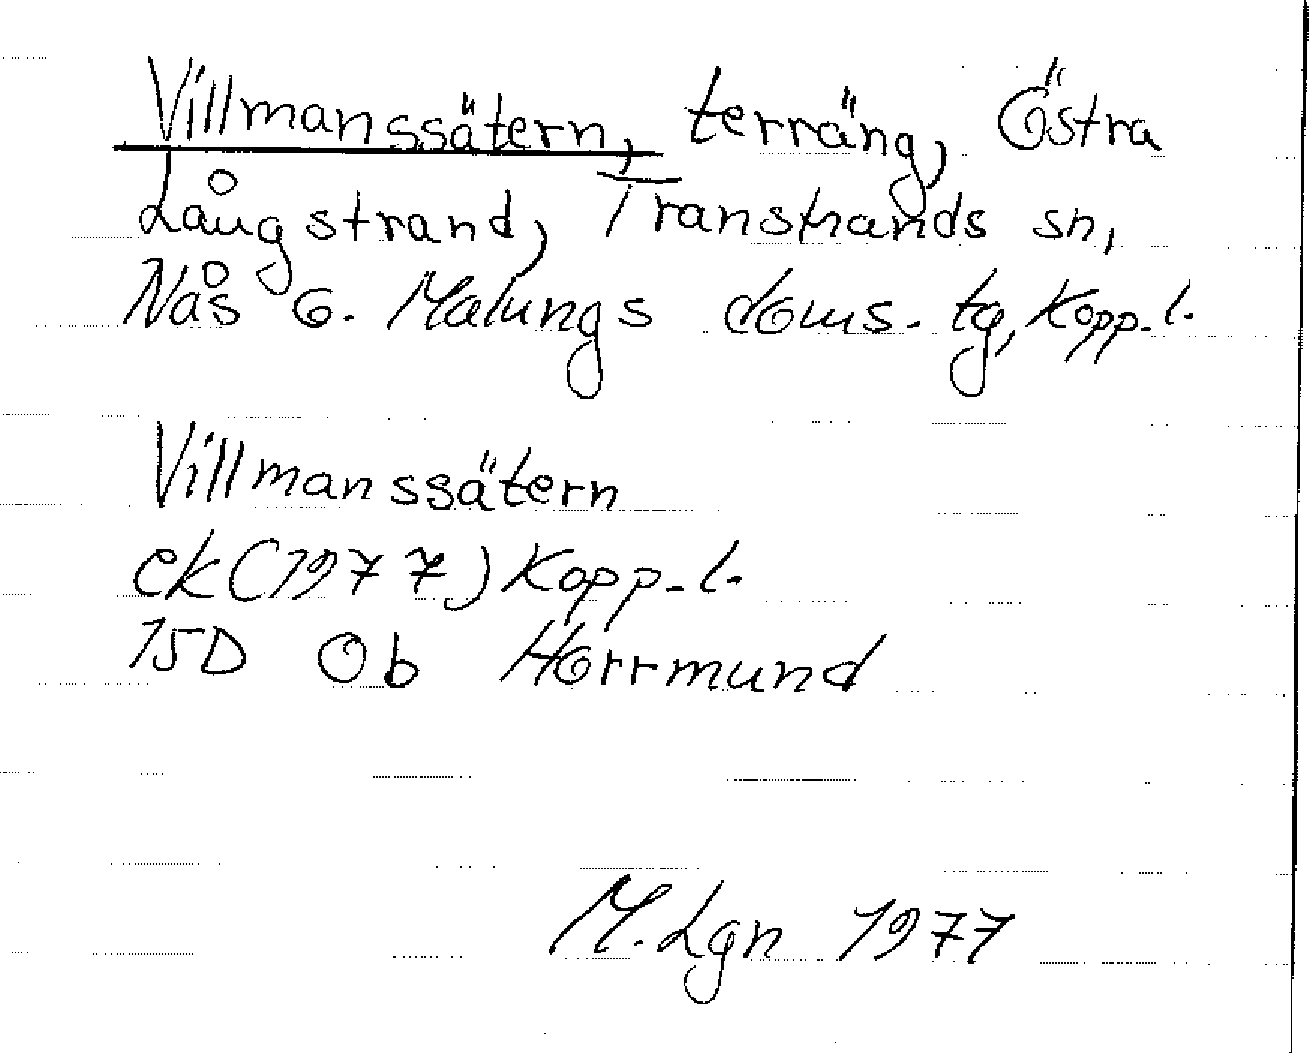 Villmanssätern, terräng, Östra
Långstrand, Transtrands sn,
Nås o. Malungs doms. tg, Kopp. l.
Villmanssätern
ek (1977) Kopp. l.
15D Ob Horrmund
M. Lgn 1977